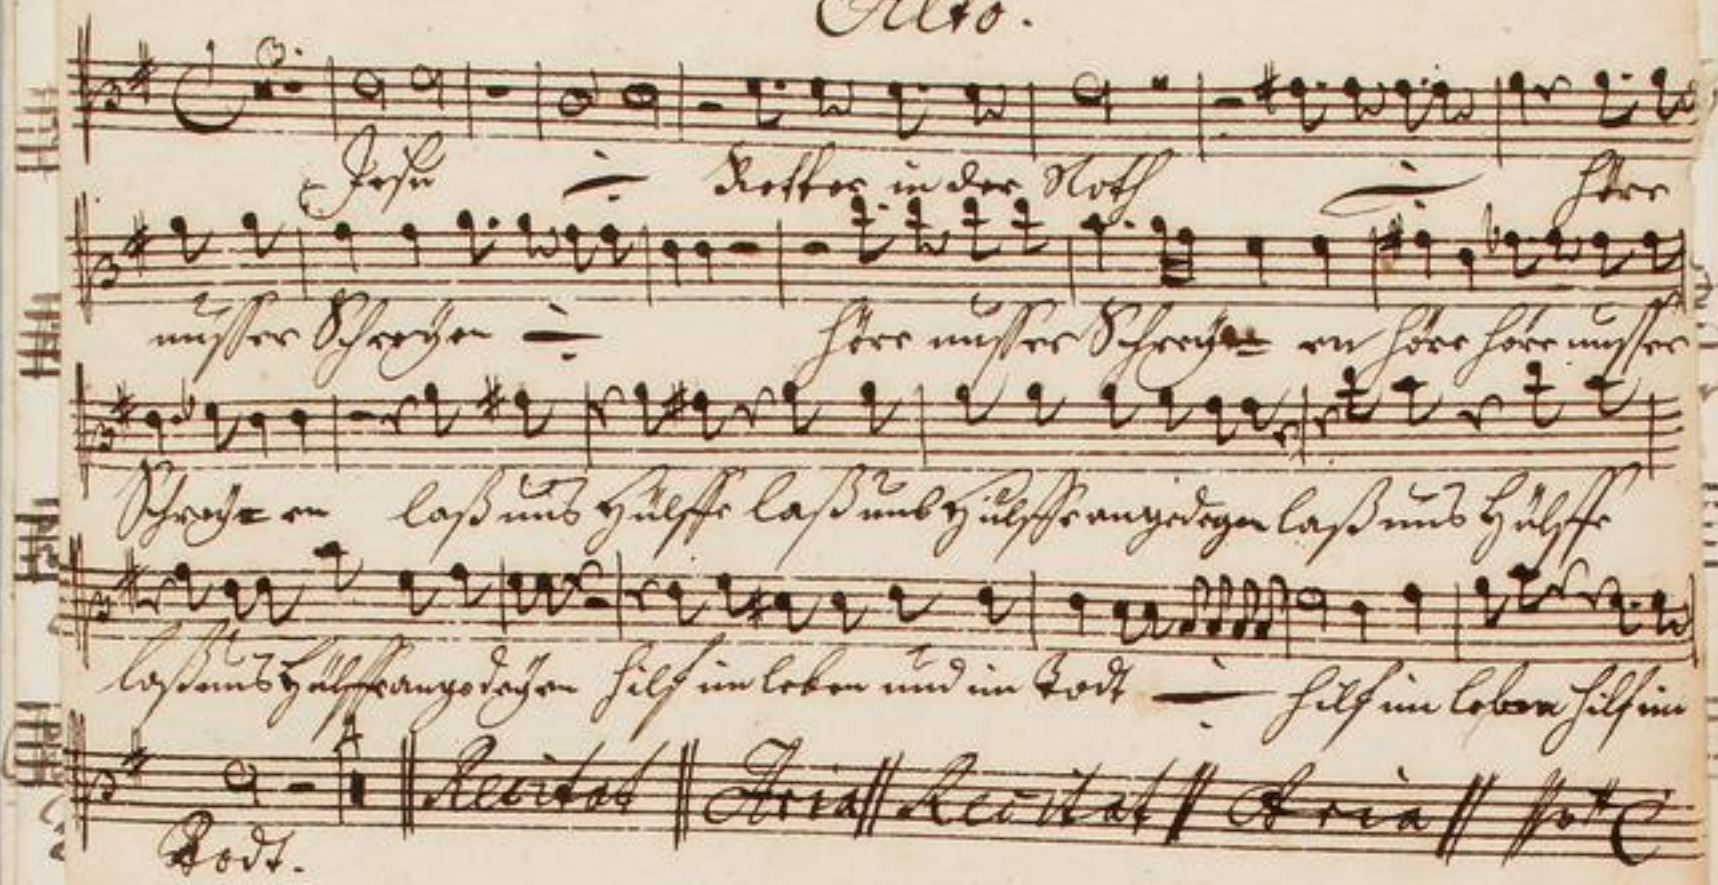 Alto.
Jesu Retter in der Noth höre
unsser Schreyen höre unsser Schreyen en höre höre unsser
Schreyen en laß uns Hülffe laß uns Hülffe angedeyen laß uns Hülffe
laß uns Hülffe angedeyen hilf im leben und im Todt hilf im leben hilf im
Recitat Aria Recitat Aria
Todt.